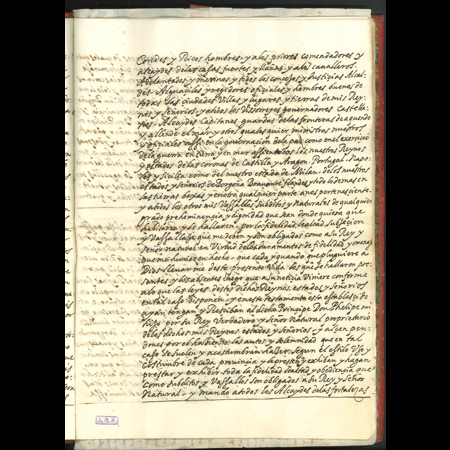 Condes, y Ricos hombres, y a los priores comendadores y
alcaydes de las casas fuertes y llanas, y a los caualleros
Adelantados, y merinos y todos los concejos y Justicias Alcal-
des Alguaciles, y regidores oficiales, y hombres buenos de
todas las ciudades Villas y lugares, y tierras de mis Rey-
nos y Señorios, y a todos los Visorreyes gouernadores Castella-
nos, Alcaydes Capitanes guardas de las fronteras de aquende
y allende el mar, y otros qualesquier ministros nuestros
y oficiales assi en la gouernacion de la paz como en el exercicio
de la guerra en tierra y en mar assi en todos los nuestros Reynos
y estados de las coronas de Castilla y Aragon Portugal Napo-
les, y Sicilia como del nuestro estado de Milan, de los nuestros
estados y señorios de Borgoña Brauante flandes, y todo lo demas en
las tierras bajas, y en otra qualquier parte a nos pertenesciente,
y a todos los otros mis Vassallos subditos y Naturales de qualquier
grado preheminencia y dignidad que sean donde quiera que
habitaren y se hallaren por la fidelidad lealtad subjecion
y Vassallage que me deben y son obligados como a su Rey, y
Señor natural en Virtud de los Juramentos de fidelidad y omenage
que me hicieron que cada y quando que pluguiere a
Dios lleuarme desta presente Vida los que se hallaren pre-
sentes y los absentes luego que a su noticia Viniere conforme
a lo que las leyes destos dichos Reynos, estados y Señorios
en tal caso disponen, y en este testamento esta establescido
ayan tengan, y Resciban al dicho Principe Don Phelipe mi
hijo por su Rey Verdadero y Señor Natural proprietario
de los dichos mis Reynos estados, y Señorios, y alcen pen-
dones por el haciendo los autos y solemnidad que en tal
caso se suelen y acostumbran hacer segun el estilo Vso y
costumbre de cada prouincia y le presten y exhiban y hagan
prestar y exhibir toda la fidelidad lealtad y obediencia que
como subditos y Vassallos son obligados a su Rey y Señor
Natural, y mando a todos los Alcaydes de las fortalezas
A.G.S.